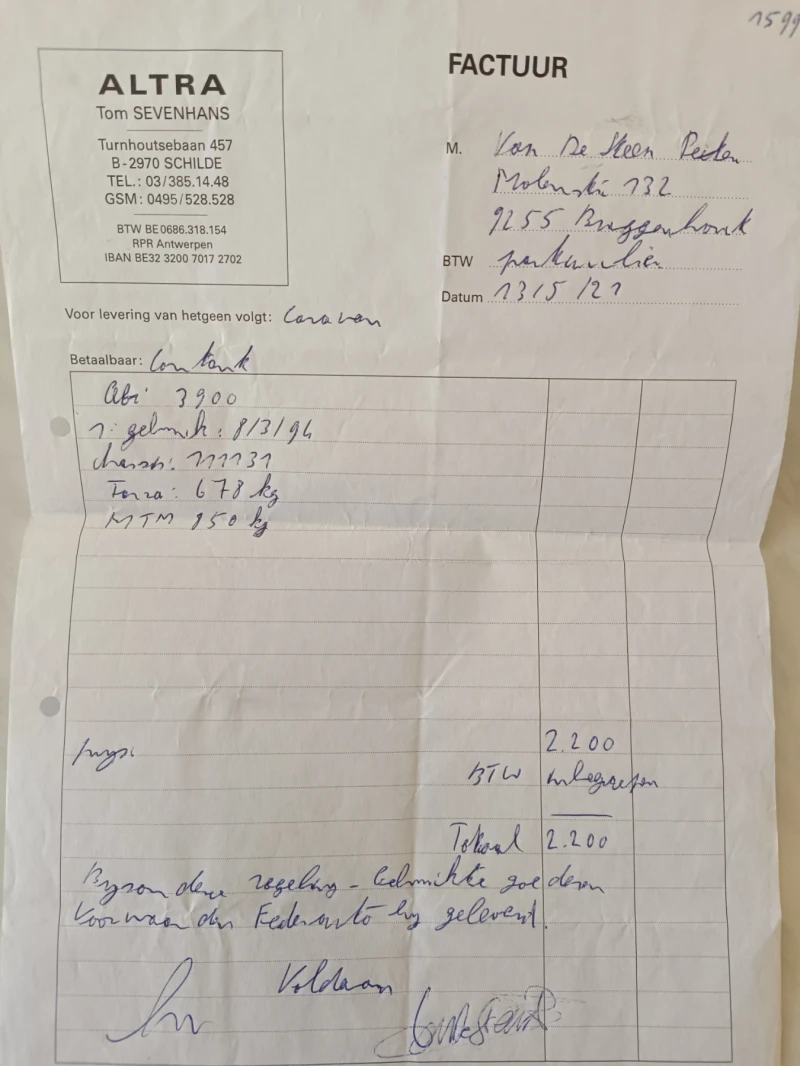 1599
ALTRA
Tom SEVENHANS
Turnhoutsebaan 457
B-2970 SCHILDE
TEL.: 03/385.14.48
GSM: 0495/528.528
BTW BE 0686.318.154
RPR Antwerpen
IBAN BE32 3200 7017 2702
FACTUUR
M. Van De Steen Peter
Molenstr 132
9255 Buggenhout
BTW particulier
Datum 13/5/21
Voor levering van hetgeen volgt: Caravan
Betaalbaar: Contant
Abi 3900
1e gebruik: 8/3/94
chassis: 111131
Tarra: 678 kg
MTM 850 kg
prijs: 2.200
BTW inbegrepen
Totaal 2.200
Byzondere regeling - Gebruikte goederen
Voorwaarden Federauto bij geleverd.
Voldaan